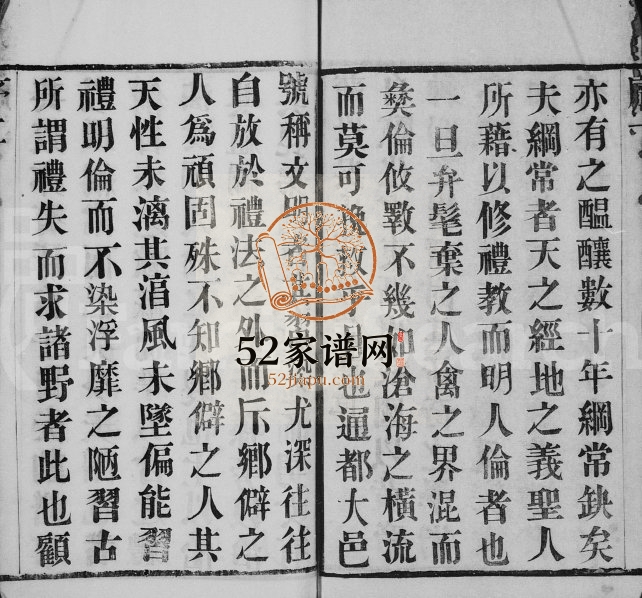 亦有之醖釀數十年綱常缺矣
夫綱常者天之經地之義聖人
所藉以修禮教而明人倫者也
一旦弁髦棄之人禽之界混而
彝倫攸斁不幾如滄海之橫流
而莫可挽救乎也通都大邑
號稱文明者尤深往往
自放於禮法之外而斥鄉僻之
人爲頑固殊不知鄉僻之人其
天性未漓其湻風未墜偏能習
禮明倫而不染浮靡之陋習古
所謂禮失而求諸野者此也顧
52家谱网
52jiapu.com